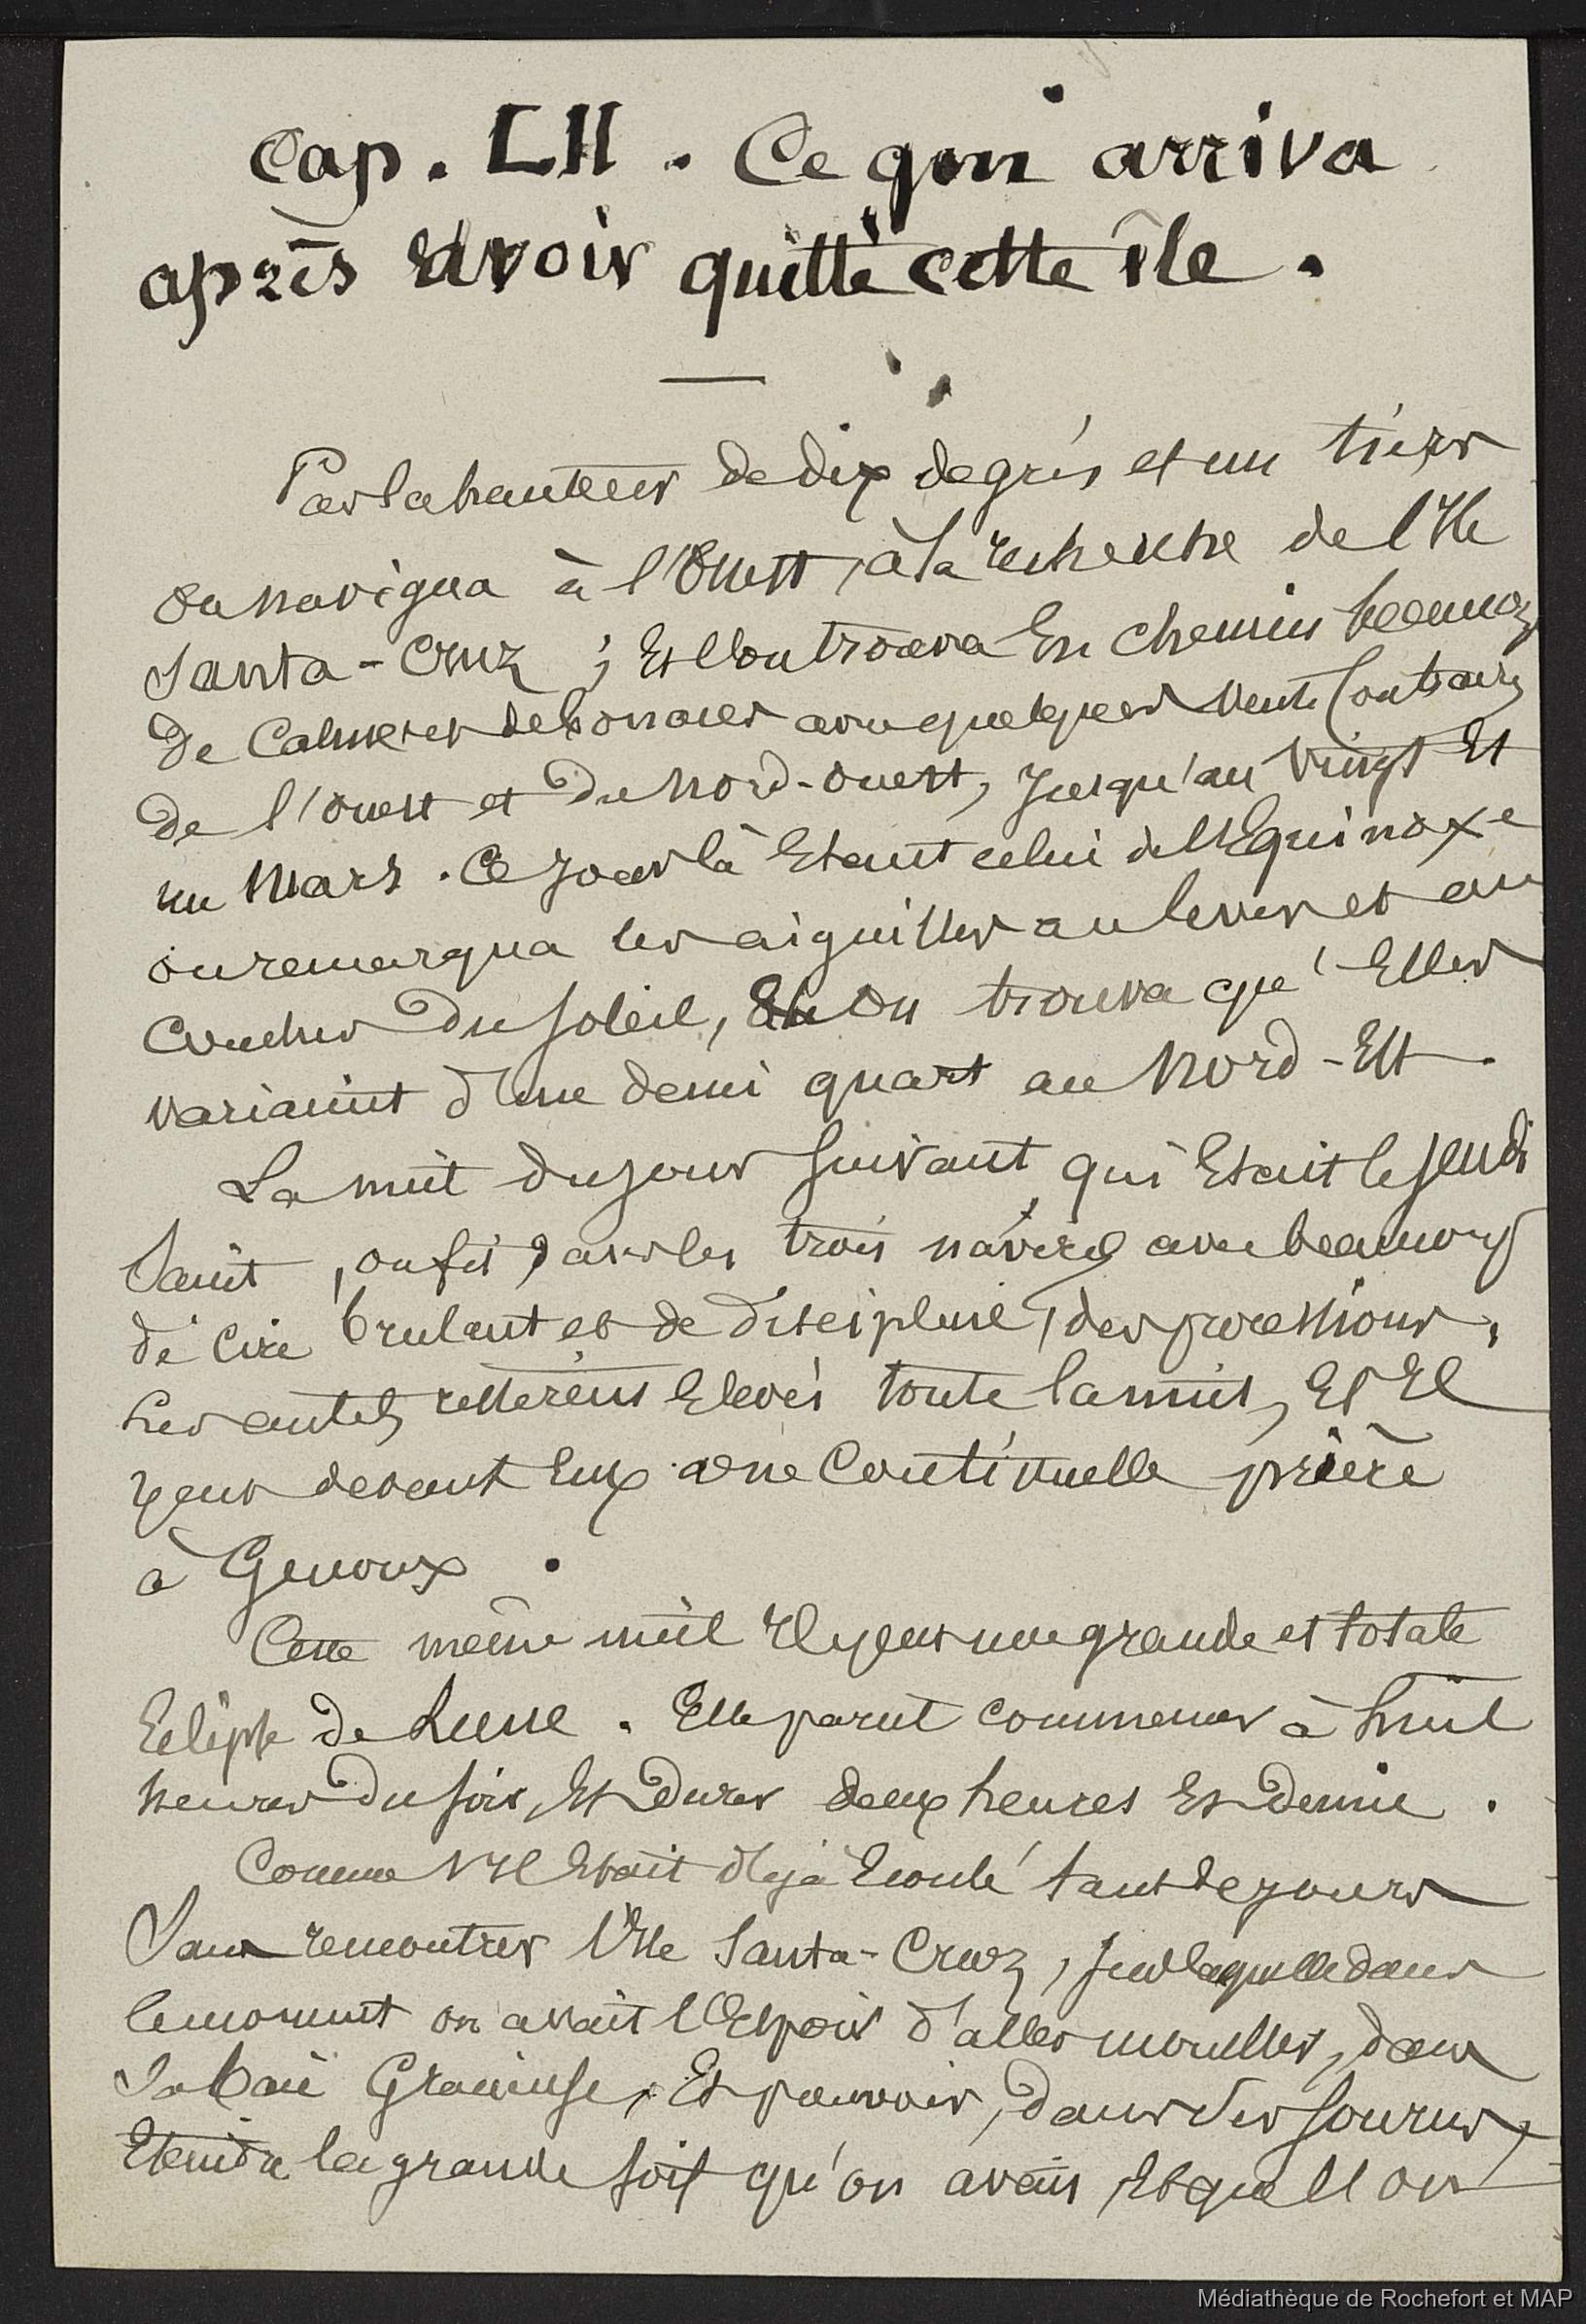 Cap. LII. Ce qui arriva
après avoir quitté cette île.
Par la hauteur de dix degrés et un tiers
on navigua à l'Ouest, à la recherche de l'Ile
Santa-Cruz ; Et l'on trouva En chemin beaucoup
de Calmes et de bonaces avec quelques vents Contraires
de l'ouest et du nord-ouest, jusqu'au Vingt Et
un Mars. Ce jour là Etant celui de l'Equinoxe
on remarqua les aiguilles au lever et au
coucher du soleil, On trouva qu'Elles
variaient d'une demi quart au Nord-Est.
La nuit du jour suivant qui Etait le Jeudi
Saint, on fit, dans les trois navires avec beaucoup
de cire brulant et de discipline, des processions,
Les autels resterent Elevés toute la nuit, Et Il
y eut devant Eux une Continuelle prière
à Genoux.
Cette même nuit Il y eut une grande et totale
Eclipse de Lune. Elle parut commencer à huit
heures du soir, Et durer deux heures Et demie.
Comme s'Il Etait déjà Ecoulé tant de jours
Sans rencontrer l'Ile Santa-Cruz, sur laquelle dans
le moment on avait l'Espoir d'aller mouiller, dans
sa baie Gracieuse, Et pouvoir, dans ses sources,
Eteindre la grande soif qu'on avait, Et que l'on
Médiathèque de Rochefort et MAP